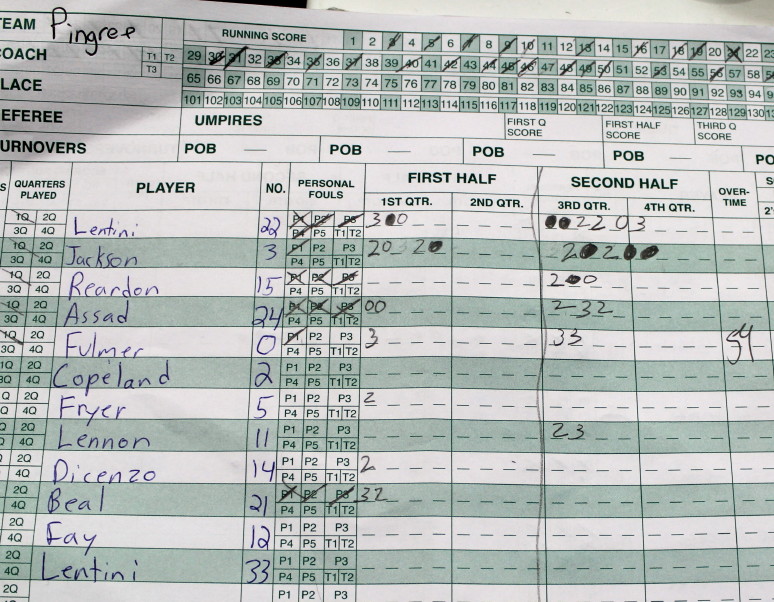 TEAM Pingree RUNNING SCORE 1 2 3 4 5 6 7 8 9 10 11 12 13 14 15 16 17 18 19 20 21 22 23
COACH T1 T2 29 30 31 32 33 34 35 36 37 38 39 40 41 42 43 44 45 46 47 48 49 50 51 52 53 54 55 56 57 58
T3 65 66 67 68 69 70 71 72 73 74 75 76 77 78 79 80 81 82 83 84 85 86 87 88 89 90 91 92 93 94
LACE 101 102 103 104 105 106 107 108 109 110 111 112 113 114 115 116 117 118 119 120 121 122 123 124 125 126 127 128 129 130
EFEREE UMPIRES FIRST Q SCORE FIRST HALF SCORE THIRD Q SCORE
URNOVERS POB POB POB POB
QUARTERS PLAYED PLAYER NO. PERSONAL FOULS FIRST HALF SECOND HALF OVER-TIME
1ST QTR. 2ND QTR. 3RD QTR. 4TH QTR.
1Q 2Q Lentini 22 P1 P2 P3 3 0 2203
3Q 4Q P4 P5 T1 T2
1Q 2Q Jackson 3 P1 P2 P3 20 20 20 20
3Q 4Q P4 P5 T1 T2
1Q 2Q Reardon 15 P1 P2 P3 2 0
3Q 4Q P4 P5 T1 T2
1Q 2Q Assad 24 P1 P2 P3 00 2-32
3Q 4Q P4 P5 T1 T2
1Q 2Q Fulmer 0 P1 P2 P3 3 33 54
3Q 4Q P4 P5 T1 T2
1Q 2Q Copeland 2 P1 P2 P3
3Q 4Q P4 P5 T1 T2
Q 2Q Fryer 5 P1 P2 P3 2
Q 4Q P4 P5 T1 T2
Q 2Q Lennon 11 P1 P2 P3 23
Q 4Q P4 P5 T1 T2
2Q Dicenzo 14 P1 P2 P3 2
4Q P4 P5 T1 T2
2Q Beal 21 P1 P2 P3 32
4Q P4 P5 T1 T2
2Q Fay 12 P1 P2 P3
4Q P4 P5 T1 T2
2Q Lentini 33 P1 P2 P3
4Q P4 P5 T1 T2
2Q P1 P2 P3